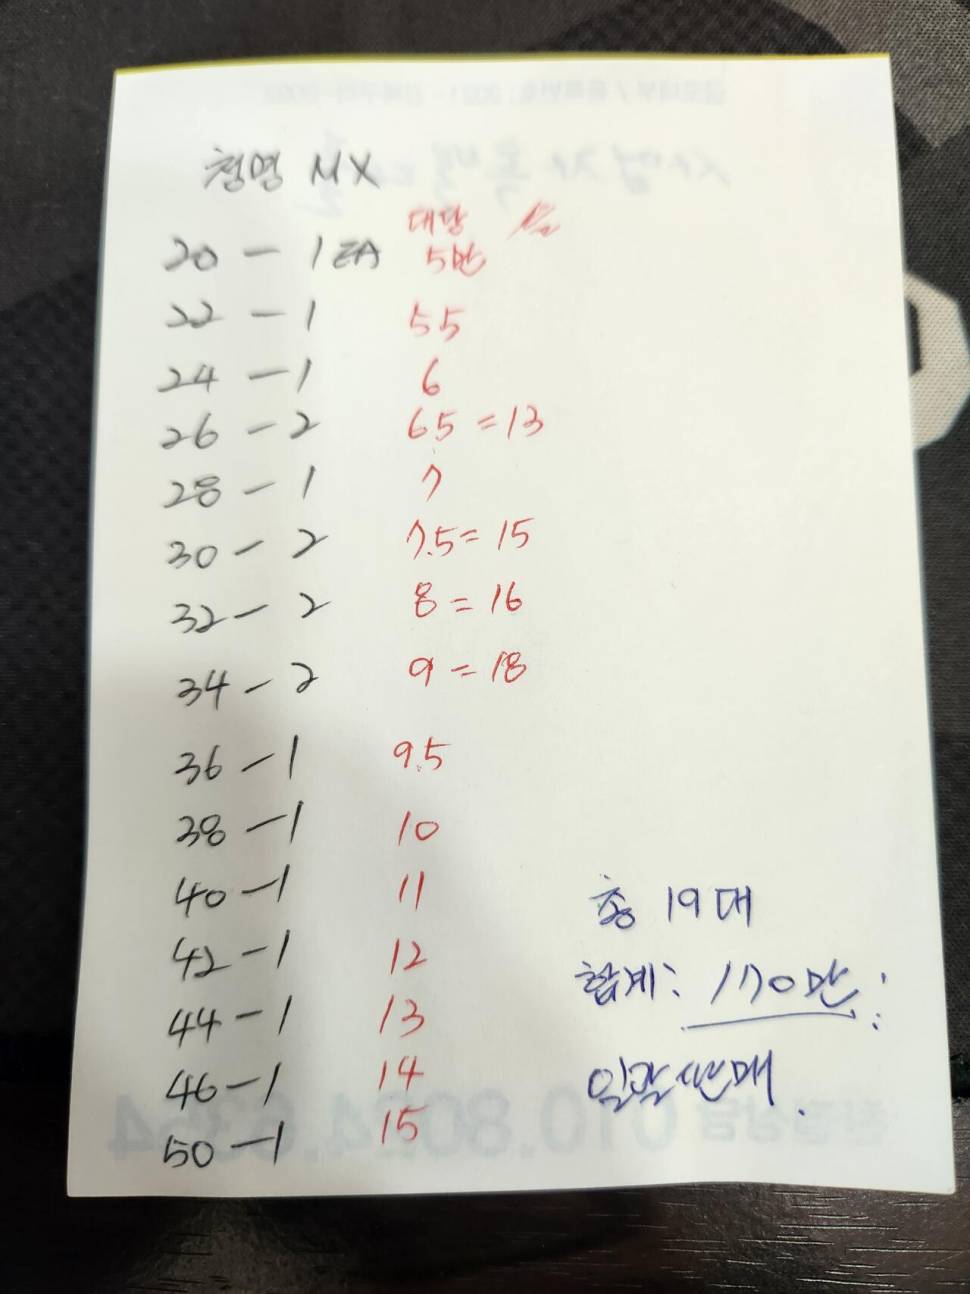 청명 MX
대당
20 - 1EA 5만
22 - 1 55
24 - 1 6
26 - 2 65 = 13
28 - 1 7
30 - 2 7.5 = 15
32 - 2 8 = 16
34 - 2 9 = 18
36 - 1 9.5
38 - 1 10
40 - 1 11
42 - 1 12
44 - 1 13
46 - 1 14
50 - 1 15
총 19대
합계: 170만
일괄판매.